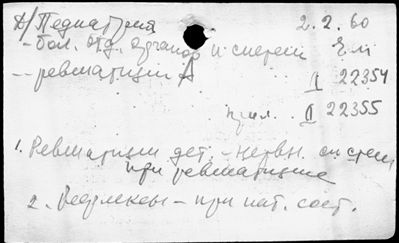 д/Педиатрия 2.2.60
- бол. отд. органов и систем
- ревматизм А II 22354
прил. II 22355
1. Ревматизм дет. - нервн. систем
при ревматизме
2. Рефлексы - при пат. сост.